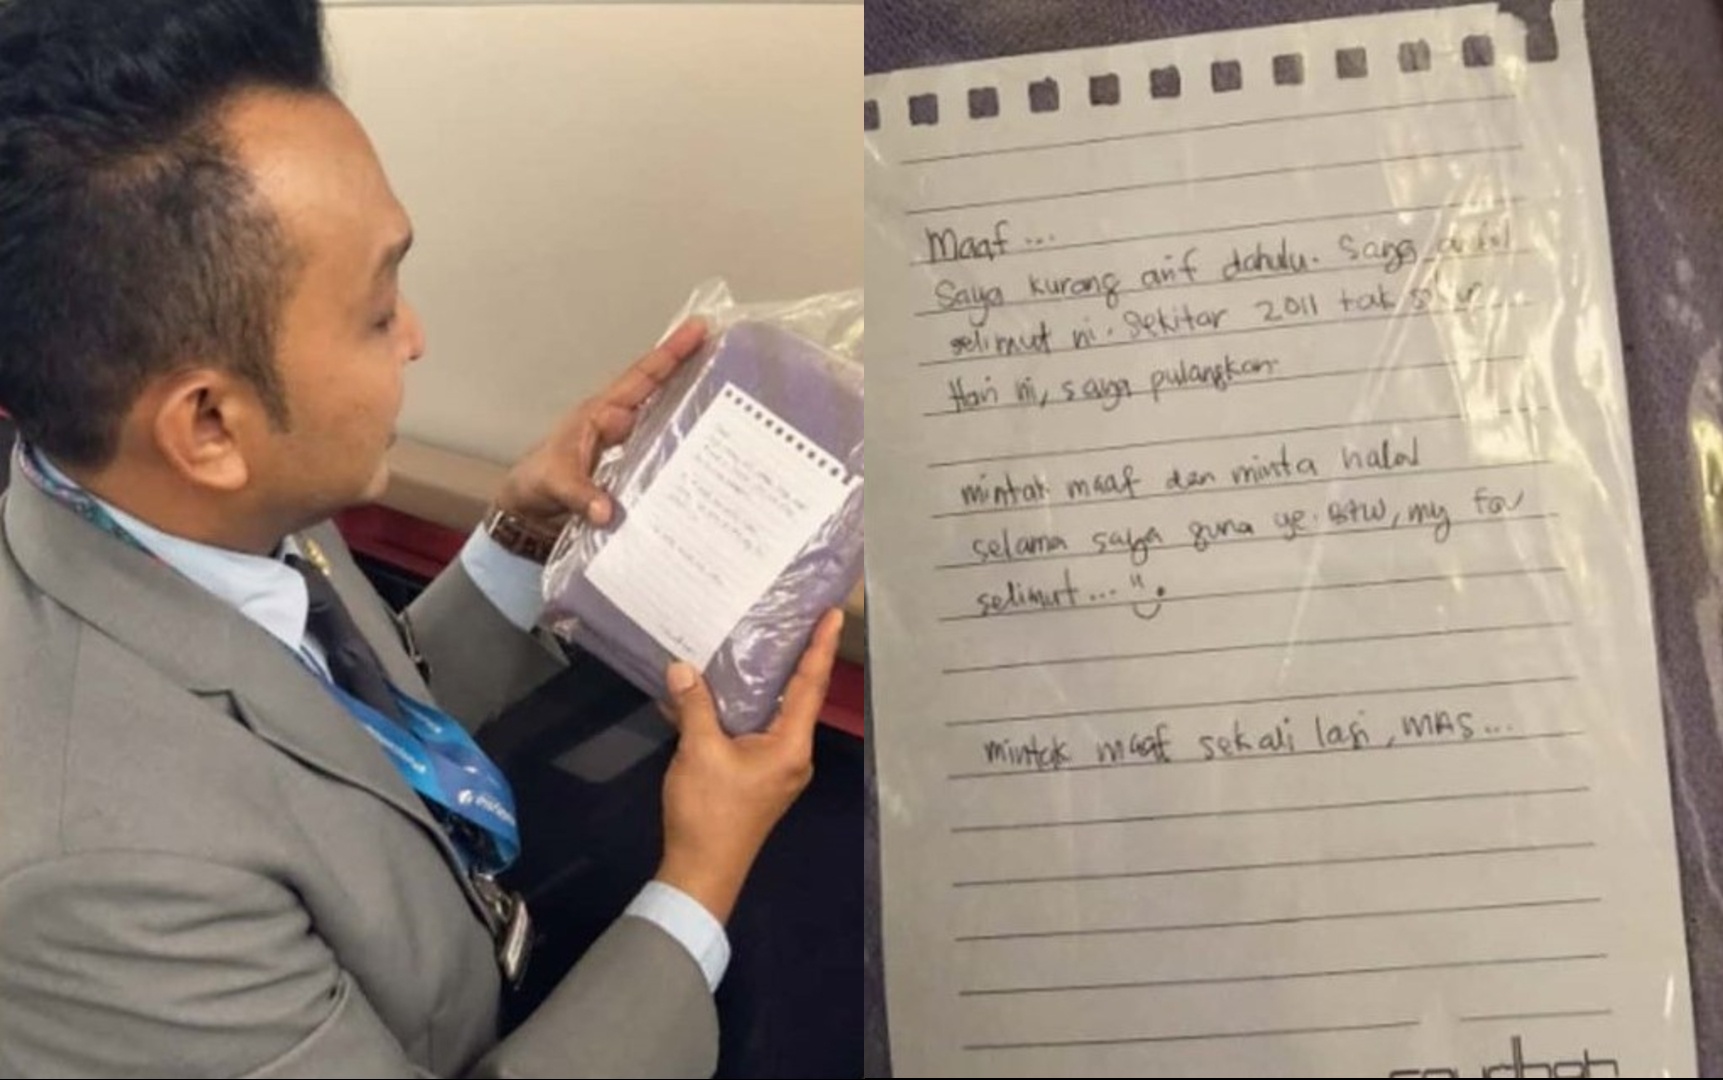 Maaf ...
Saya kurang arif dahulu. Saya ambil
selimut ni. Sekitar 2011 tak silap ...
Hari ni, saya pulangkan
mintak maaf dan minta halal
selama saya guna ye. BTW, my fav
selimut ...
mintak maaf sekali lagi, MAS ...